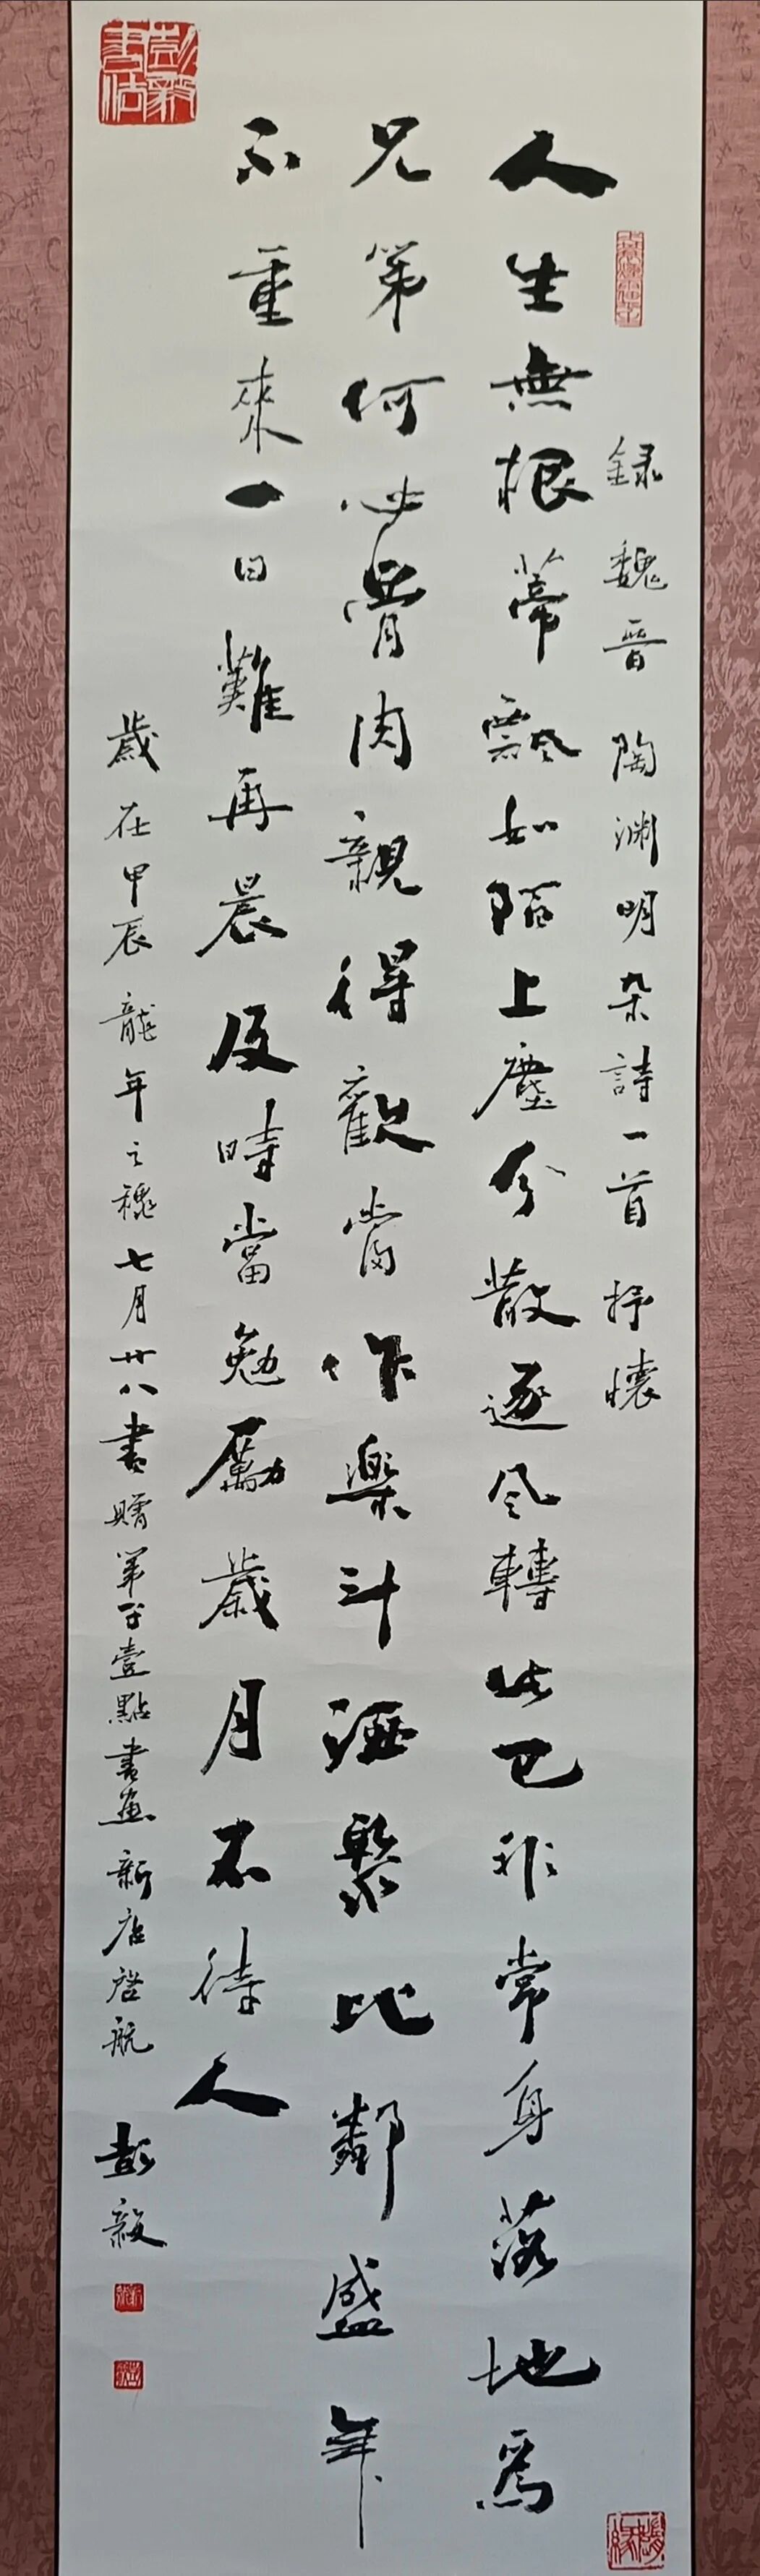 録魏晋陶渊明杂詩一首抒懷
人生無根蒂飄如陌上塵分散逐风轉此已非常身落地爲
兄弟何必骨肉親得歡當作樂斗酒聚比鄰盛年
不重來一日難再晨及時當勉勵歲月不待人
歲在甲辰龍年之穐七月廿八書贈第一壹點書画新店啓航 彭毅
彭毅書法